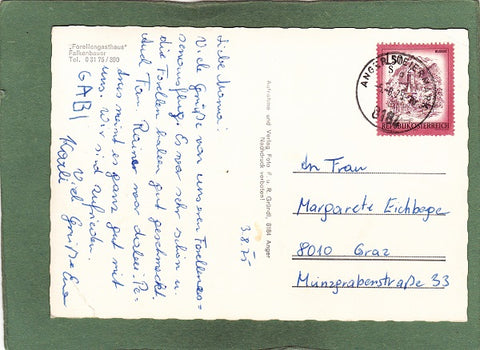 "Forellengasthaus"
Falkenbauer
Tel. 0 31 75 / 390
Liebe Mama!
Viele Grüße von unserem Forellenes=
senausflug. Es war sehr schön u.
die Forellen haben gut geschmeckt.
Und Tom, Rainer war dabei. Pe-
ter meint es ganz gut mit
uns. Wir sind zufrieden.
Viele Grüße Eva
GABI
Karli
3.8.75
Aufnahme und Verlag Foto F. u. R. Gründl, 8184 Anger
Nachdruck verboten!
REPUBLIK ÖSTERREICH
ANGER
8184
An Frau
Margarete Eichberger
8010 Graz
Münzgrabenstraße 33